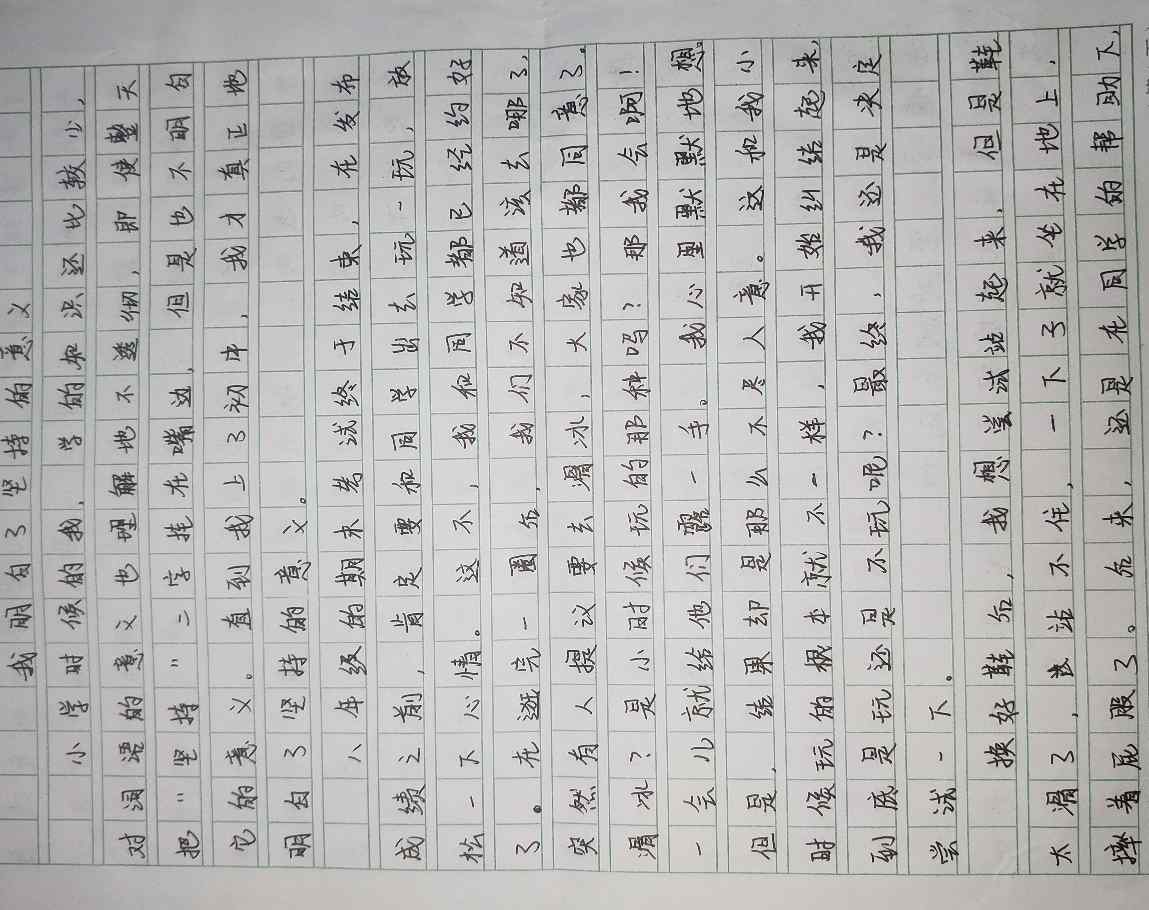 我明白了坚持的意义
小学时候的我,学的知识还比较少,
对词语的意义也理解地不透彻,即使整天
把"坚持"二字挂在嘴边,但是也不明白
它的意义。直到我上了初中,我才真正地
明白了坚持的意义。
八年级的期末考试终于结束,在发布
成绩之前,肯定要和同学出去玩一玩,放
松一下心情。这不,我和同学都已经约好
了。在逛完一圈后,我们不知道该去哪了,
突然有人提议要去滑冰,大家也都同意了。
滑冰?是小时候玩的那种吗?那我会啊!
一会儿就给他们露一手。我心里默默地想。
但是,结果却是那么不尽人意。这和我小
时候玩的根本就不一样,我开始纠结起来,
到底是玩还是不玩呢?最终,我还是决定
尝试一下。
换好鞋后,我想尝试站起来,但是鞋
太滑了,站不住,一下子就坐在地上,
摔着屁股了。后来,还是在同学的帮助下,